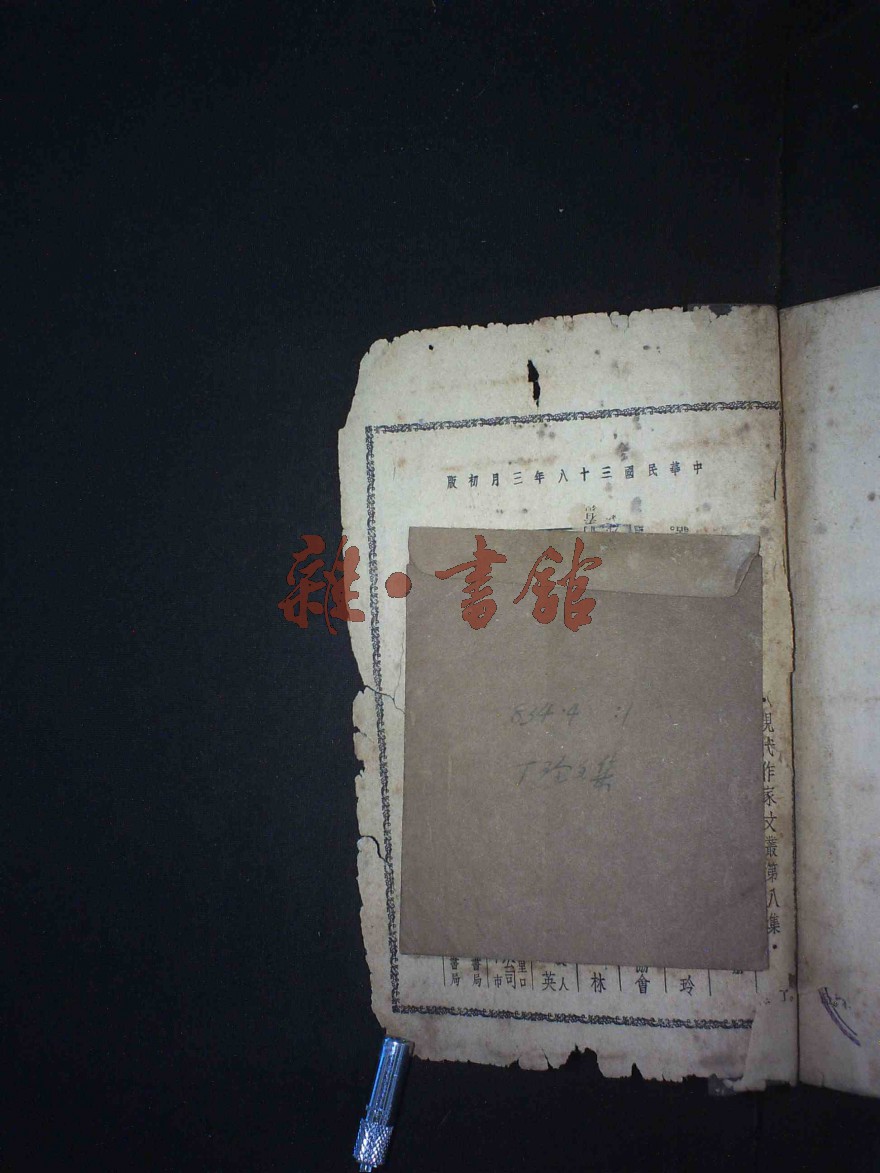 中華民國三十八年三月初版
雜·書館
834.4 :1
丁玲文集
·現代作家文叢第八集·
玲
協會
林
人
英
里口
公司
市
書局
書局
了。